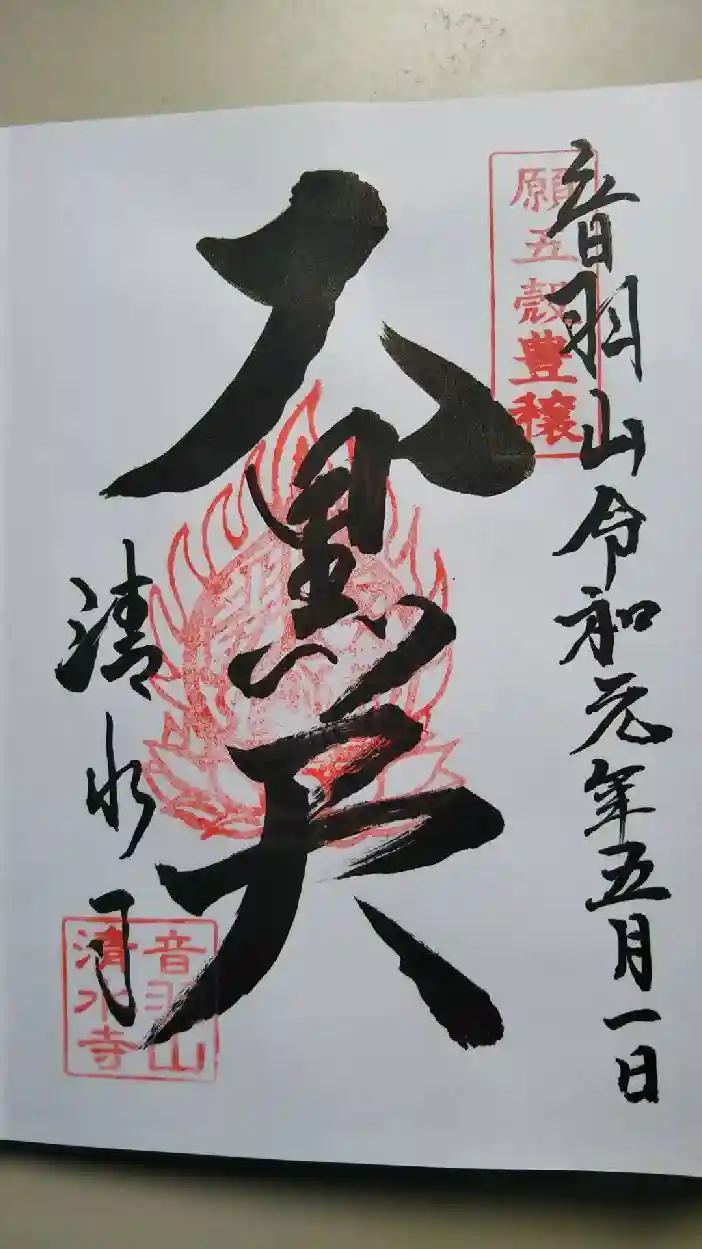 音羽山令和元年五月一日
願五穀豊穣
大黒天
清水寺
音羽山
清水寺